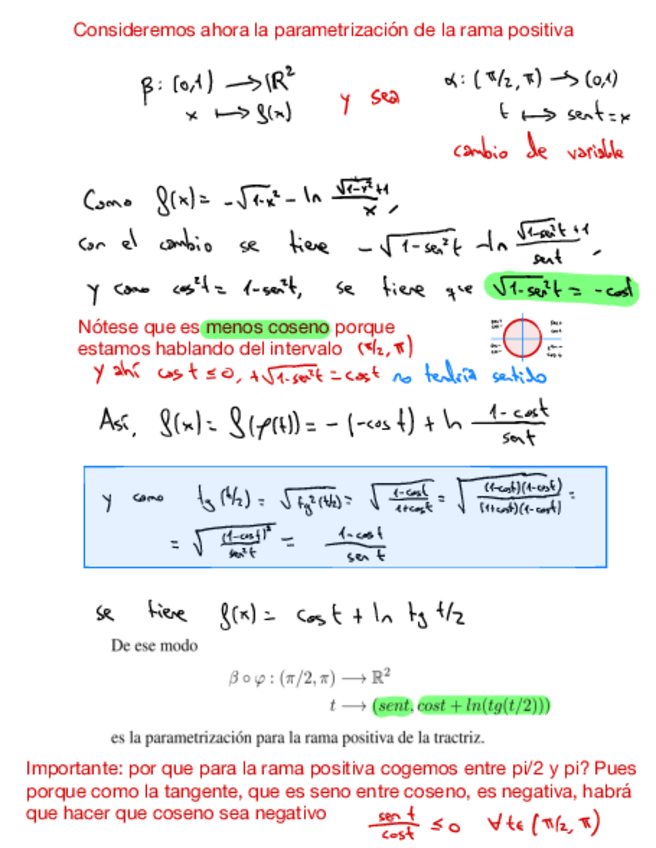 Consideremos ahora la parametrización de la rama positiva
β: (0,1) ⟶ ℝ² y sea α: (π/2, π) → (0,1)
x ⟼ f(x) t ⟼ sent = x
cambio de variable
Como f(x) = -√(1-x²) - ln (√(1-x²)+1)/x,
con el cambio se tiene -√(1-sen²t) - ln (√(1-sen²t)+1)/sent,
y como cos²t = 1-sen²t, se tiene que √(1-sen²t) = -cost
Nótese que es menos coseno porque
estamos hablando del intervalo (π/2, π)
y ahí cos t ≤ 0, +√(1-sen²t) = cost no tendría sentido
Así, f(x) = f(φ(t)) = -(-cos t) + ln (1-cost)/sent
y como tg(t/2) = √(tg²(t/2)) = √((1-cost)/(1+cost)) = √((1-cost)(1-cost)/(1+cost)(1-cost)) =
= √((1-cost)²/sen²t) = (1-cost)/sen t
se tiene f(x) = cost + ln tg t/2
De ese modo
β ∘ φ : (π/2, π) ⟶ ℝ²
t ⟶ (sent, cost + ln(tg(t/2)))
es la parametrización para la rama positiva de la tractriz.
Importante: por que para la rama positiva cogemos entre pi/2 y pi? Pues
porque como la tangente, que es seno entre coseno, es negativa, habrá
que hacer que coseno sea negativo sen t/cost ≤ 0 ∀t∈(π/2, π)